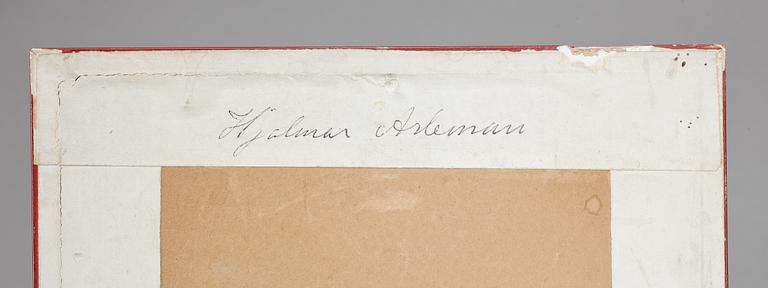 Hjalmar Arleman